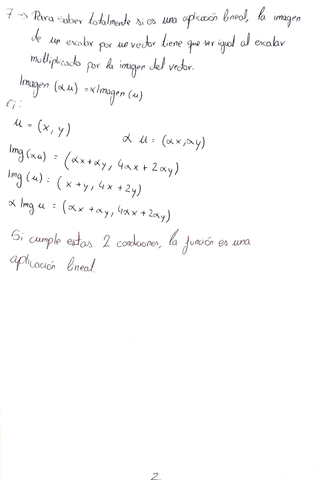 7 → Para saber totalmente si es una aplicación lineal, la imagen
de un escalar por un vector tiene que ser igual al escalar
multiplicado por la imagen del vector.
Imagen (αu) = αImagen (u)
Ej:
u = (x, y)    α u = (αx, αy)
Img (αu) = (αx + αy, 4αx + 2αy)
Img (u) = (x + y, 4x + 2y)
α Img u = (αx + αy, 4αx + 2αy)
Si cumple estas 2 condiciones, la función es una
aplicación lineal.
2